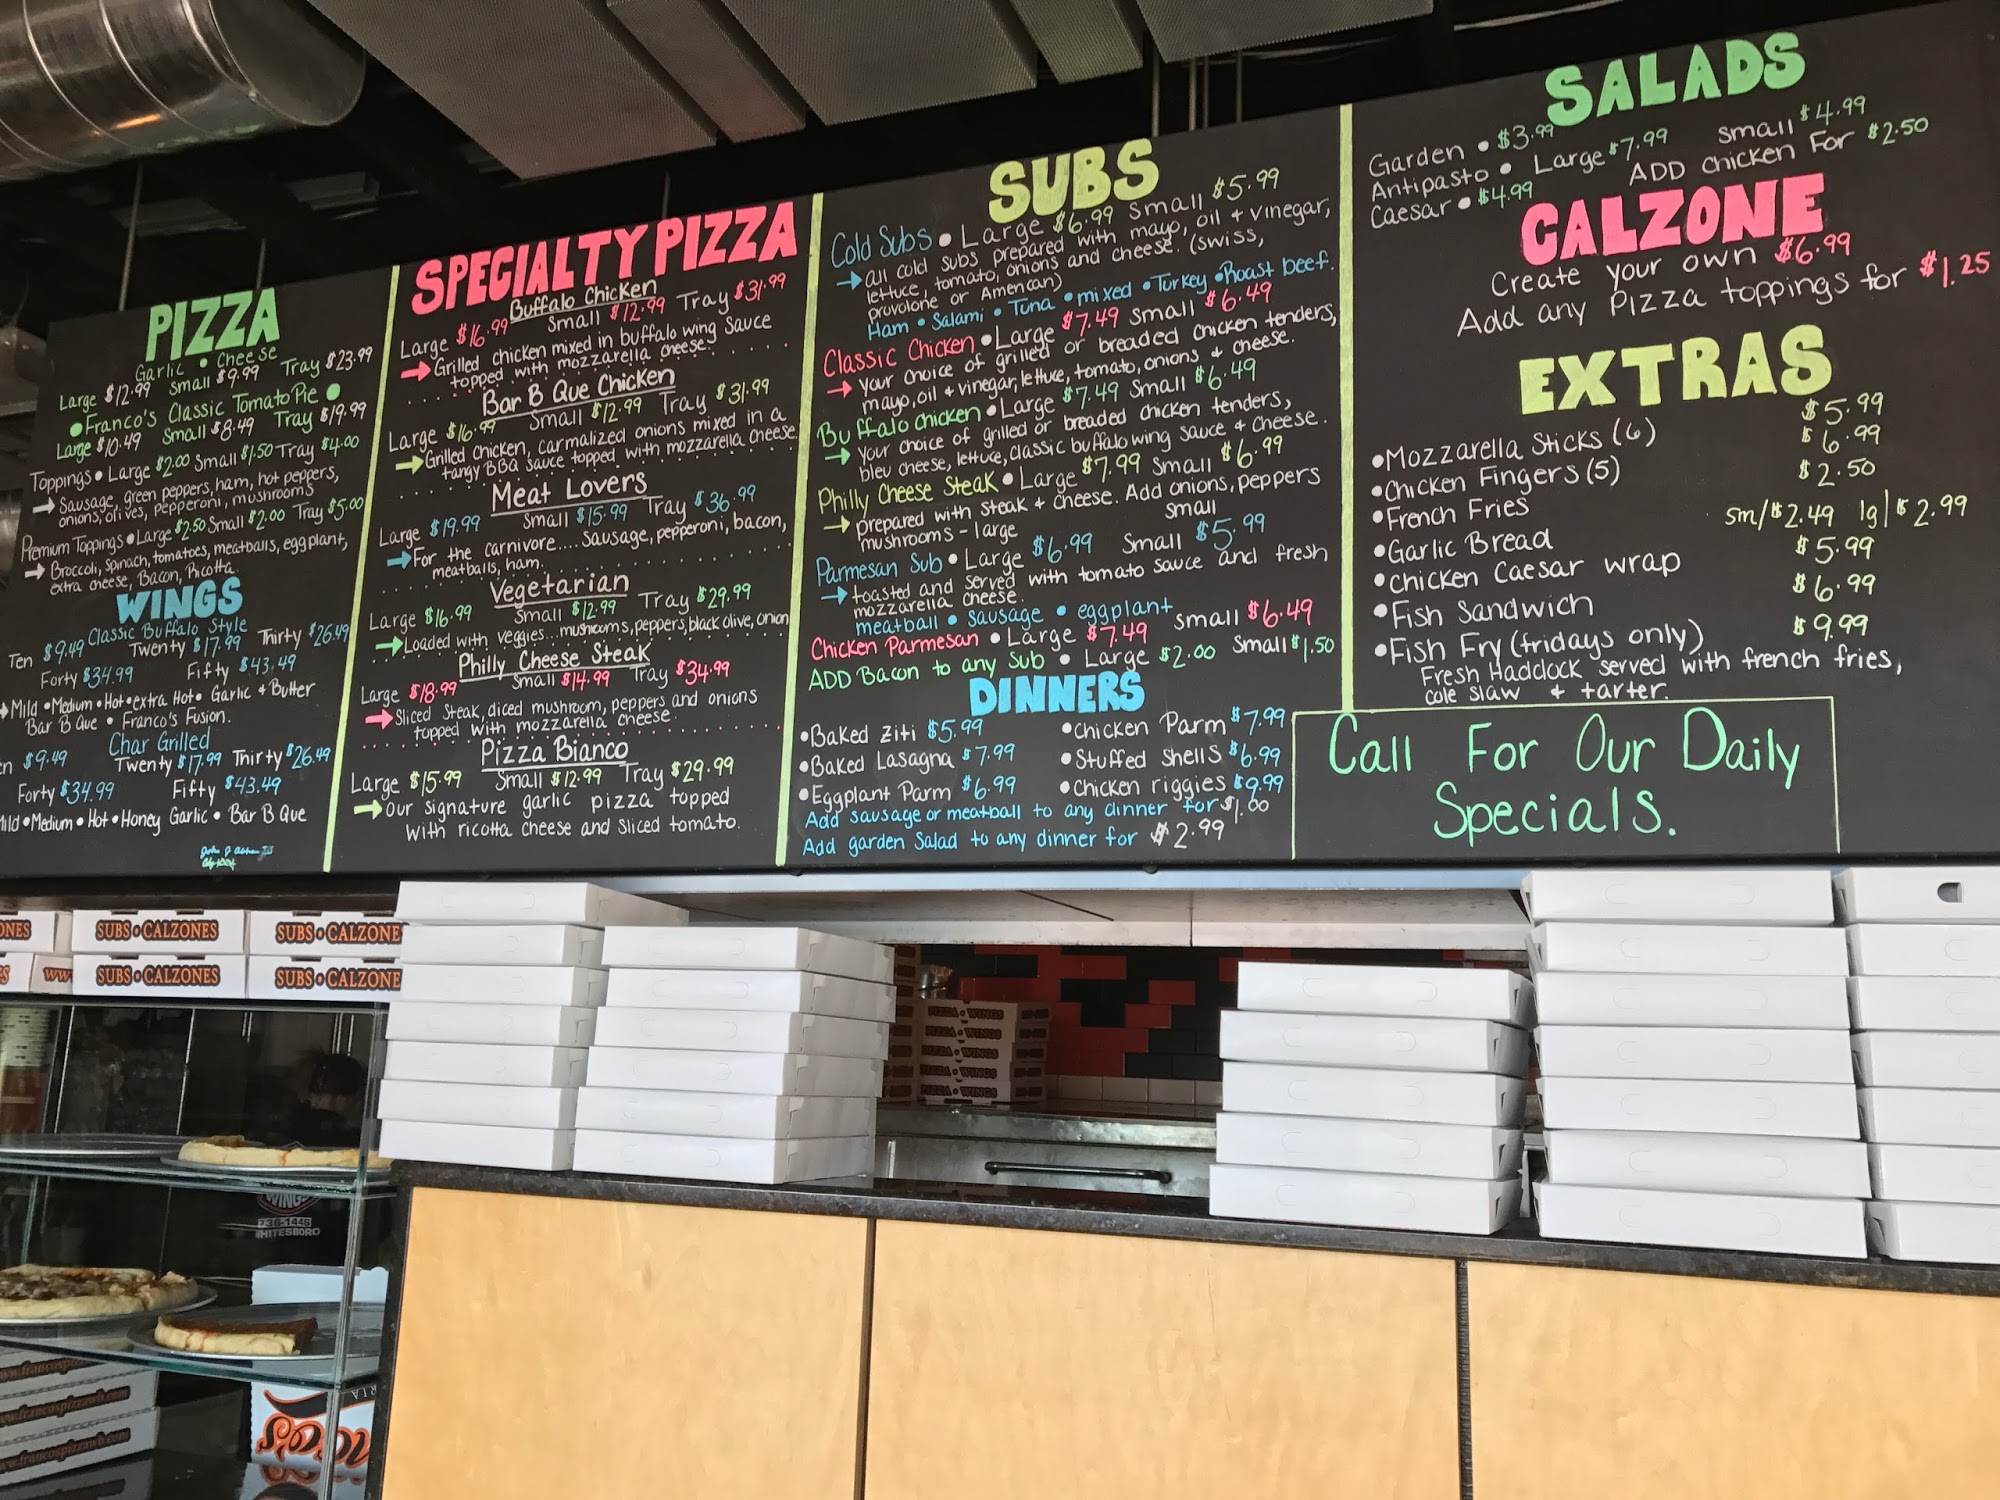 PIZZA
Garlic • Cheese
Large $12.99 Small $9.99 Tray $23.99
• Franco's Classic Tomato Pie •
Large $10.49 Small $8.49 Tray $19.99
Toppings • Large $2.00 Small $1.50 Tray $4.00
→ Sausage, green peppers, ham, hot peppers,
onions, olives, pepperoni, mushrooms
Premium Toppings • Large $2.50 Small $2.00 Tray $5.00
→ Broccoli, spinach, tomatoes, meatballs, eggplant,
extra cheese, Bacon, Ricotta.
WINGS
Classic Buffalo Style
Ten $9.49 Twenty $17.99 Thirty $26.49
Forty $34.99 Fifty $43.49
→ Mild • Medium • Hot • extra Hot • Garlic & Butter
Bar B Que • Franco's Fusion.
Char Grilled
en $9.49 Twenty $17.99 Thirty $26.49
Forty $34.99 Fifty $43.49
Mild • Medium • Hot • Honey Garlic • Bar B Que
SPECIALTY PIZZA
Buffalo Chicken
Large $16.99 Small $12.99 Tray $31.99
→ Grilled chicken mixed in buffalo wing sauce
topped with mozzarella cheese.
Bar B Que Chicken
Large $16.99 Small $12.99 Tray $31.99
→ Grilled chicken, carmalized onions mixed in a
tangy BBQ sauce topped with mozzarella cheese.
Meat Lovers
Large $19.99 Small $15.99 Tray $36.99
→ For the carnivore.... Sausage, pepperoni, bacon,
meatballs, ham.
Vegetarian
Large $16.99 Small $12.99 Tray $29.99
→ Loaded with veggies... mushrooms, peppers, black olive, onion
Philly Cheese Steak
Large $18.99 Small $14.99 Tray $34.99
→ Sliced steak, diced mushroom, peppers and onions
topped with mozzarella cheese.
Pizza Bianco
Large $15.99 Small $12.99 Tray $29.99
→ Our signature garlic pizza topped
with ricotta cheese and sliced tomato.
SUBS
Cold Subs • Large $6.99 Small $5.99
→ all cold subs prepared with mayo, oil & vinegar,
lettuce, tomato, onions and cheese. (swiss,
provolone or American)
Ham • Salami • Tuna • mixed • Turkey • Roast beef.
Classic Chicken • Large $7.49 Small $6.49
→ your choice of grilled or breaded chicken tenders,
mayo, oil & vinegar, lettuce, tomato, onions & cheese.
Buffalo chicken • Large $7.49 Small $6.49
→ your choice of grilled or breaded chicken tenders,
bleu cheese, lettuce, classic buffalo wing sauce & cheese.
Philly Cheese Steak • Large $7.99 Small $6.99
→ prepared with steak & cheese. Add onions, peppers
mushrooms - large small
Parmesan Sub • Large $6.99 Small $5.99
→ toasted and served with tomato sauce and fresh
mozzarella cheese.
meatball • sausage • eggplant
Chicken Parmesan • Large $7.49 Small $6.49
ADD Bacon to any Sub • Large $2.00 Small $1.50
DINNERS
• Baked Ziti $5.99 • Chicken Parm $7.99
• Baked Lasagna $7.99 • Stuffed Shells $6.99
• Eggplant Parm $6.99 • Chicken riggies $9.99
Add sausage or meatball to any dinner for $1.00
Add garden Salad to any dinner for $2.99
SALADS
Garden • $3.99
Antipasto • Large $7.99 small $4.99
Caesar • $4.99 ADD chicken For $2.50
CALZONE
Create your own $6.99
Add any Pizza toppings for $1.25
EXTRAS
• Mozzarella Sticks (6) $5.99
• Chicken Fingers (5) $6.99
• French Fries $2.50
• Garlic Bread sm/$2.49 lg/$2.99
• Chicken Caesar wrap $5.99
• Fish Sandwich $6.99
• Fish Fry (fridays only) $9.99
Fresh Haddock served with french fries,
cole slaw & tarter.
Call For Our Daily
Specials.
ONES SUBS • CALZONES SUBS • CALZONE
www SUBS • CALZONES SUBS • CALZONE
PIZZA • WINGS
PIZZA • WINGS
PIZZA • WINGS
PIZZA • WINGS
PIZZA • WINGS
WINGS
736-1446
WHITESBORO
www.francospizzawb.com
www.francospizzawb.com
www.francospizzawb.com